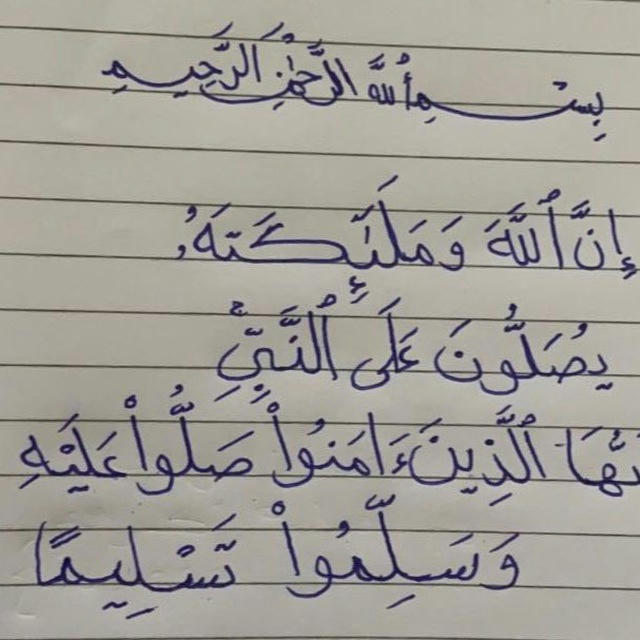 بِسْمِ ٱللَّهِ الرَّحْمَٰنِ الرَّحِيمِ
إِنَّ ٱللَّهَ وَمَلَٰٓئِكَتَهُۥ
يُصَلُّونَ عَلَى ٱلنَّبِيِّۚ
ٱلَّذِينَ ءَامَنُوا۟ صَلُّوا۟ عَلَيْهِ
وَسَلِّمُوا۟ تَسْلِيمًا